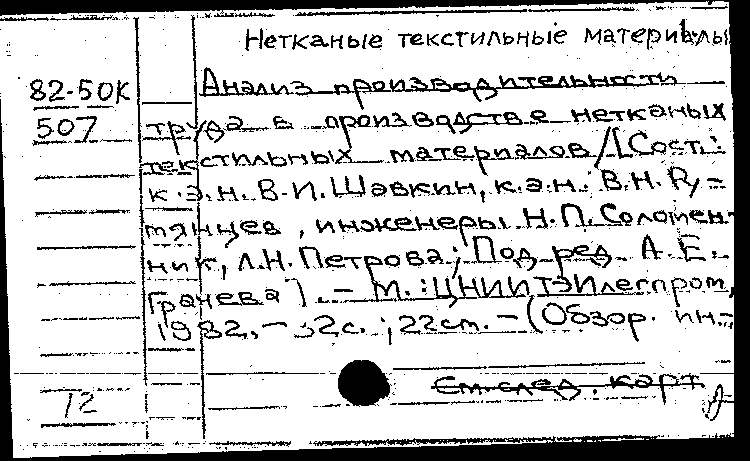 Нетканые текстильные материалы
82-50К Анализ производительности
507 труда в производстве нетканых
текстильных материалов/[Сост.:
к.э.н. В.И.Шавкин, к.э.н. В.Н.Ру-
мянцев, инженеры Н.П.Соломен-
ник, Л.Н.Петрова; Под ред. А.Е.
Грачева]. - М.: ЦНИИТЭИлегпром,
1982, - 32с.; 22см. - (Обзор. ин.;
12 См. след. карт